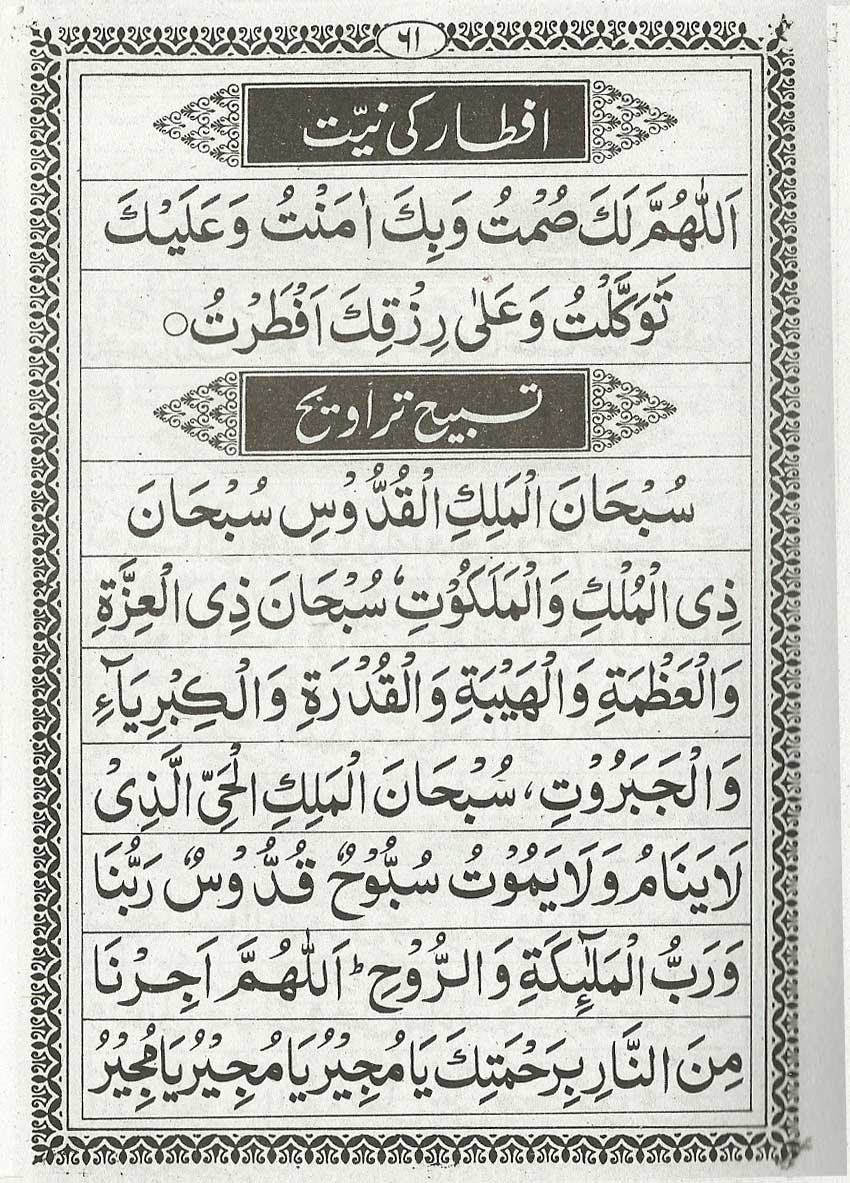 ٦١
افطار کی نیّت
اَللّٰهُمَّ لَكَ صُمْتُ وَبِكَ اٰمَنْتُ وَعَلَيْكَ
تَوَكَّلْتُ وَعَلٰى رِزْقِكَ اَفْطَرْتُ ○
تسبیح تراویح
سُبْحَانَ الْمَلِكِ الْقُدُّوْسِ سُبْحَانَ
ذِى الْمُلْكِ وَالْمَلَكُوْتِ ؕ سُبْحَانَ ذِى الْعِزَّةِ
وَالْعَظْمَةِ وَالْهَيْبَةِ وَالْقُدْرَةِ وَالْكِبْرِيَآءِ
وَالْجَبَرُوْتِ، سُبْحَانَ الْمَلِكِ الْحَىِّ الَّذِىْ
لَا يَنَامُ وَلَا يَمُوْتُ سُبُّوْحٌ قُدُّوْسٌ رَبُّنَا
وَرَبُّ الْمَلٰٓئِكَةِ وَالرُّوْحِ ؕ اَللّٰهُمَّ اَجِرْنَا
مِنَ النَّارِ بِرَحْمَتِكَ يَا مُجِيْرُ يَا مُجِيْرُ يَا مُجِيْرُ